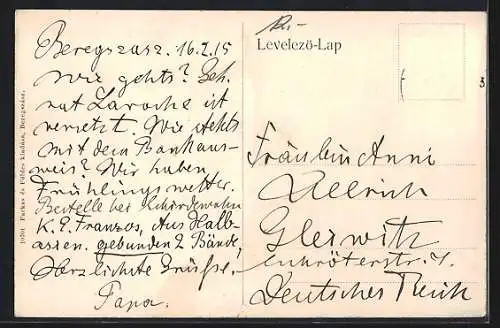 Beregszasz. 16.2.15
Wie gehts? Geh.
rat Laroche ist
versetzt. Wie stehts
mit dem Bankaus-
weis? Wir haben
Frühlingswetter.
Bestelle bei
K. E. Franzos, Aus Halb-
asien. gebunden 2 Bände,
Herzlichste Grüsse.
Papa.
Levelező-Lap
Fräulein Anni
Ullrich
Gleiwitz
Deutsches Reich
Farkas és Földes kiadása, Beregszász.